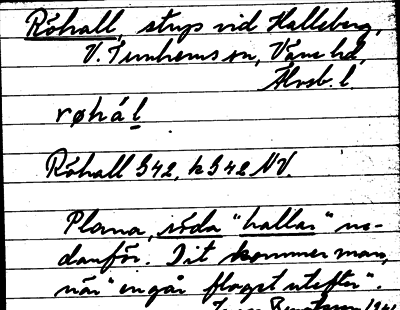 Röhall, stup vid Halleberg,
V. Tunhems sn, Väne hd,
Älvsb. l.
røhál
Röhall 342, k 342 NV.
Plana, röda "hallar" ne-
danför. Dit kommer man,
när "en går floget utefter".